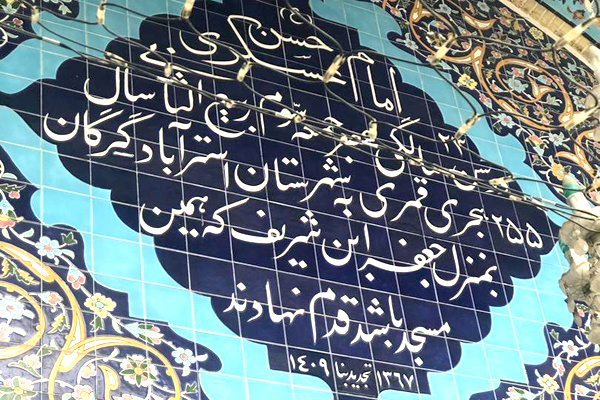 امام حسن عسکری
سن ۲۳ سالگی جمعه سوم ربیع الثانی سال
۲۵۵ هجری قمری به شهرستان استرآباد گرگان
بمنزل جعفر ابن شریف که همین
مسجد باشد قدم نهادند
۱۳۶۷ تجدید بنا ۱۴۰۹